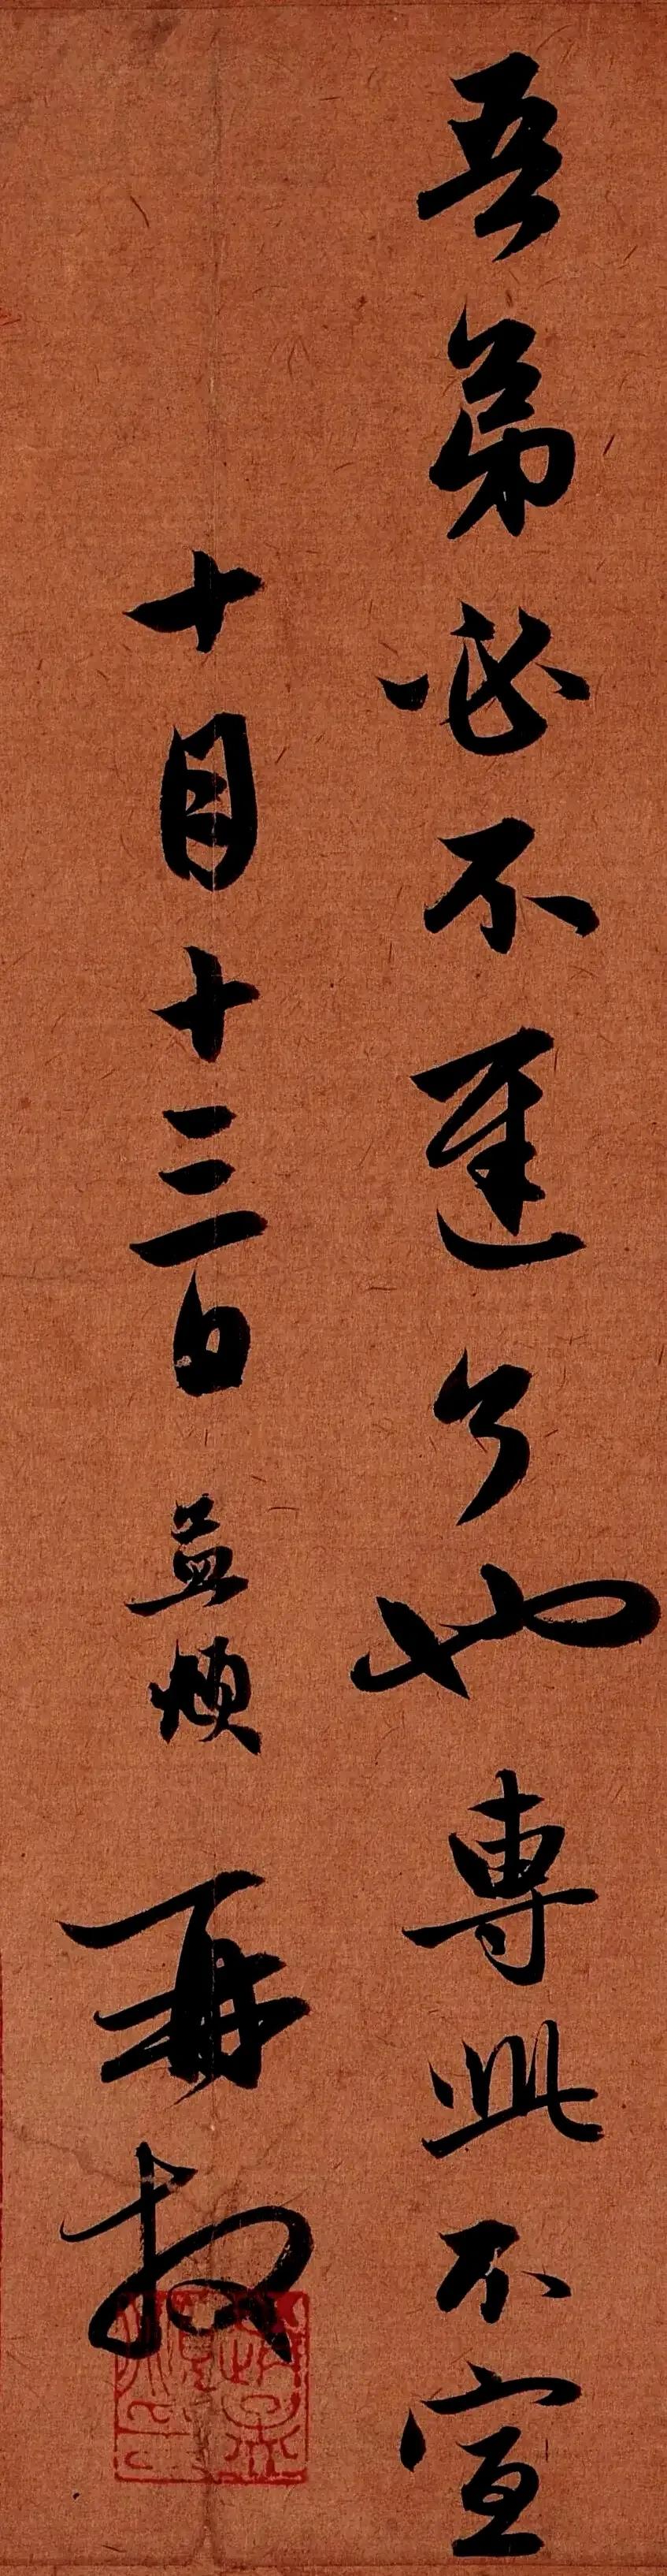 吾弟必不遲了也專此不宣
十月十三日孟頫再拜